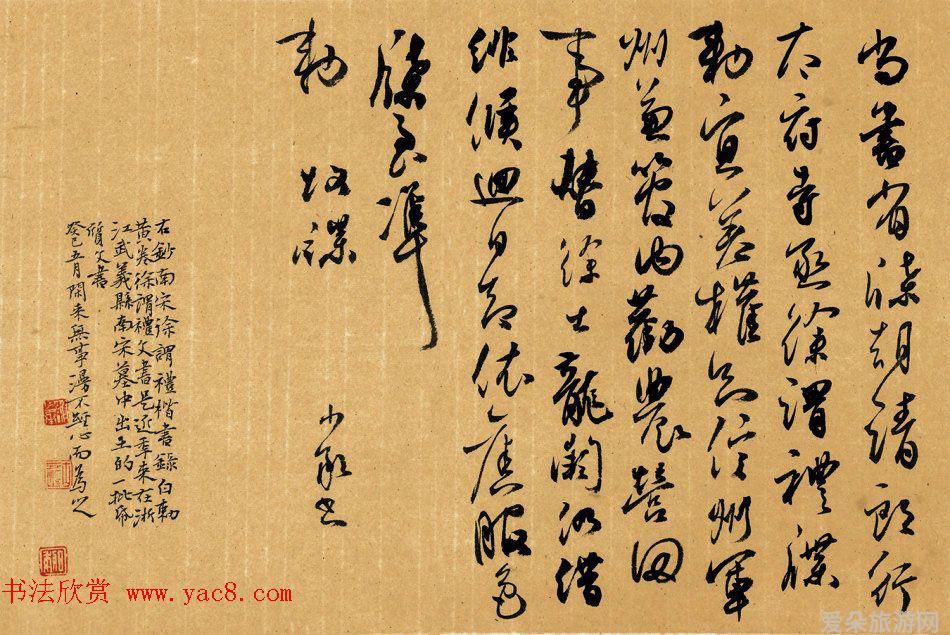 尚書省牒朝請郎行
太府寺丞徐謂禮牒
勅宜差權知信州軍
州兼管內勸農營田
事替徐士龍闕仍借
緋候迴日却依舊服色
牒至準
勅故牒
右鈔南宋徐謂禮楷書錄白勅
黃卷徐謂禮文書是近年來在浙
江武義縣南宋墓中出土的一批紙
質文書
癸巳五月閑來無事漫不經心而為之
书法欣赏 www.yac8.com
爱朵旅游网